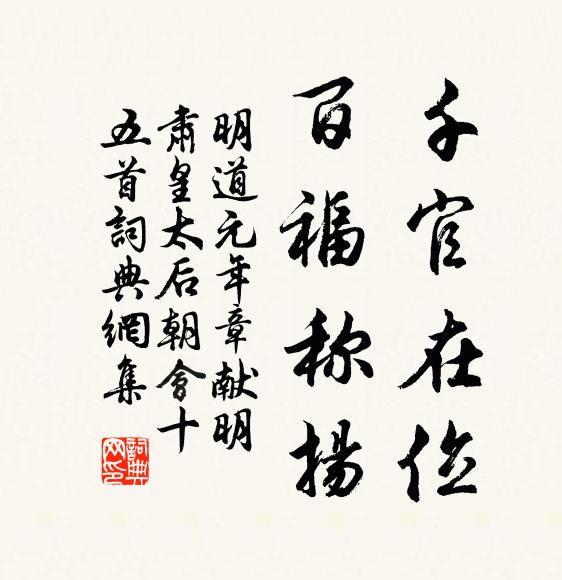 千官在位
百福称揚
明道元年章献明
肅皇太后朝會十
五首詞典網集
詞典
网印